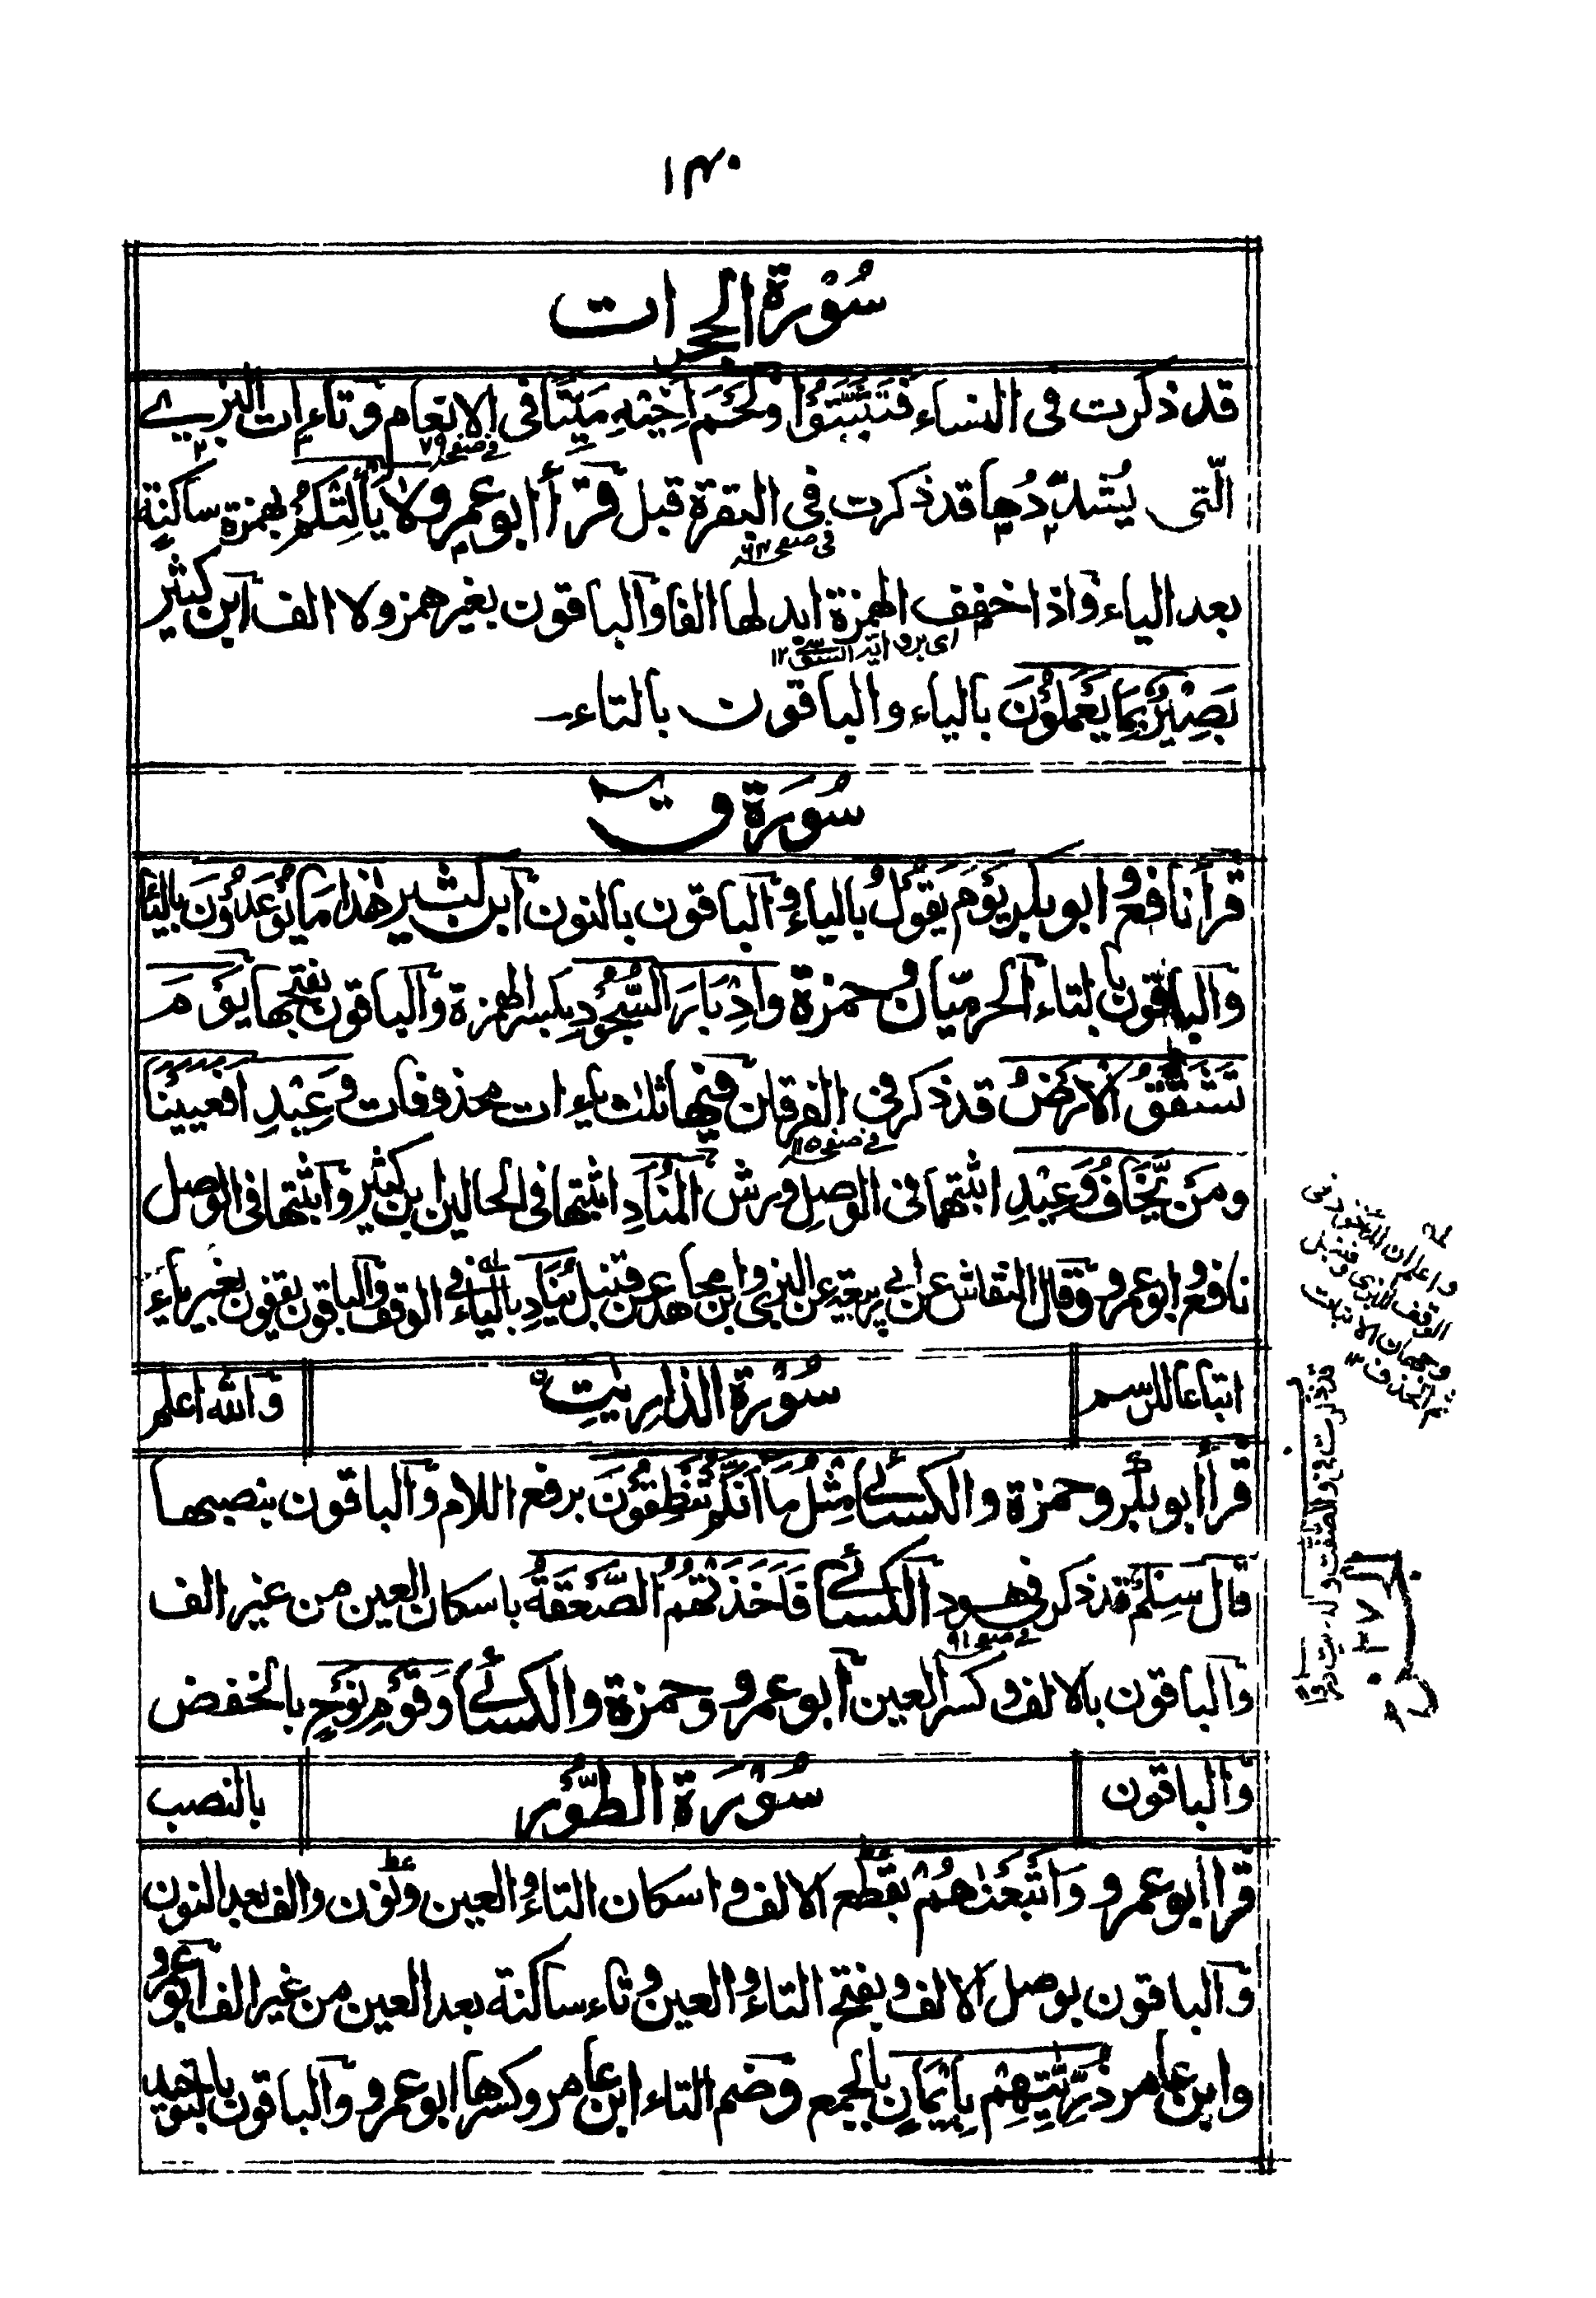 ١٤٠
سُوْرَةُ الحجرات
قد ذكرت فى النساء فَتَثَبَّتُوْا ولَحْمَ اَخِيْهِ مَيْتًا فى الانعام وتاءات البزى
فے صفحہ ٧٩
الّتى يُشدّدُها قد ذكرت فى البقرة قبل قرأ ابو عمرو لا يَأْلِتْكُمْ بهمزة ساكنة
فى صفحہ ٦٣
بعد الياء واذا خفف الهمزة ابدلها الفا والباقون بغير همز ولا الف ابن كثير
اى بروايۃ السوسی ١٢
بَصِيْرٌ بِمَا يَعْمَلُوْنَ بالياء والباقون بالتاء۔
سُوْرَة قٓ
قرأ نافع وابو بكر يَوْمَ يَقُوْلُ بالياء والباقون بالنون ابن كثير هٰذا مَا يُوْعَدُوْنَ بالياء
والباقون بالتاء الحرميّان وحمزة وَاِدْبَارَ السُّجُوْدِ بكسر الهمزة والباقون بفتحها يَوْمَ
تَشَقَّقُ الْاَرْضُ قد ذكر فى الفرقان فيها ثلٰث ياءات محذوفات وَعِيْدِ افعيينا
فے صفحہ ١١٥
ومَنْ يَّخَافُ وَعِيْدِ اثبتهما فى الوصل ورش المُنَادِ اثبتها فى الحالين ابن كثير واثبتها فى الوصل
نافع وابو عمرو وقال النقاش عن ابى ربيعة عن البزى وابن مجاهد عن قنبل يُنَادِ بالياء فى الوقف والباقون يقفون بغير ياء
اتباعا للرسم
سُوْرَةُ الذاريٰتِ
والله اعلم
قرأ ابو بكر وحمزة والكسائى مِثْلُ مَا اَنَّكُمْ تَنْطِقُوْنَ برفع اللام والباقون بنصبها
قال سِلْمٌ قد ذكر فى هود الكسائى فَاَخَذَتْهُمُ الصَّعْقَةُ باسكان العين من غير الف
فے صفحہ ٩١
والباقون بالالف وكسر العين ابو عمرو وحمزة والكسائى وَقَوْمِ نُوْحٍ بالخفض
والباقون
سُوْرَةُ الطُّوْر
بالنصب
قرا ابو عمرو وَاَتْبَعْنٰهُمْ بقطع الالف واسكان التاء والعين ونون والف بعد النون
والباقون بوصل الالف وبفتح التاء والعين وتاء ساكنة بعد العين من غير الف ابو عمرو
وابن عامر ذُرِّيّٰتِهِمْ بِاِيْمَانٍ بالجمع وضم التاء ابن عامر وكسرها ابو عمرو والباقون بالتوحيد